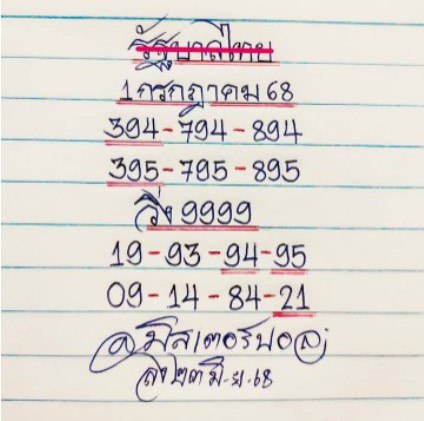 รัฐบาลไทย
1 กรกฎาคม 68
394-794-894
395-795-895
วิ่ง 9999
19-93-94-95
09-14-84-21
มิสเตอร์ปอล
ลง ๒๓ มิ.ย. 68